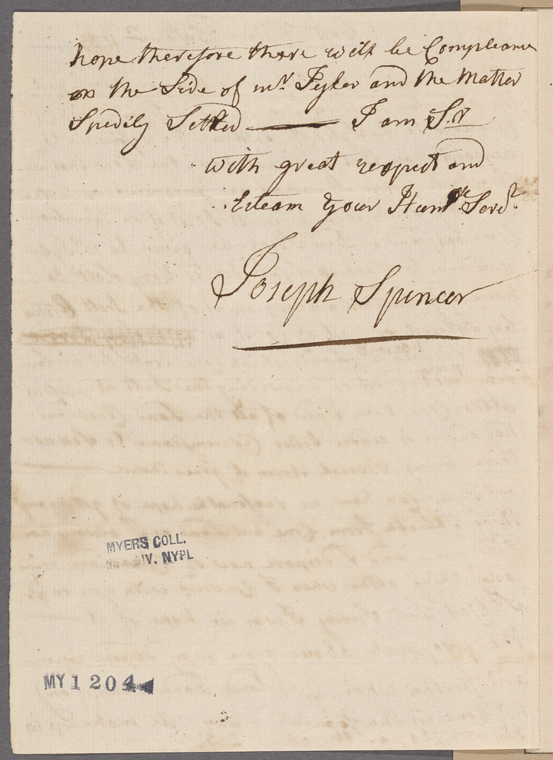 hope therefore there will be Compleance
on the Side of mr Tyler and the Matter
Spedily Settled I am Sr
with great respect and
Esteam your Humle Servt
Joseph Spencer
MYERS COLL.
DIV. NYPL
MY 1204